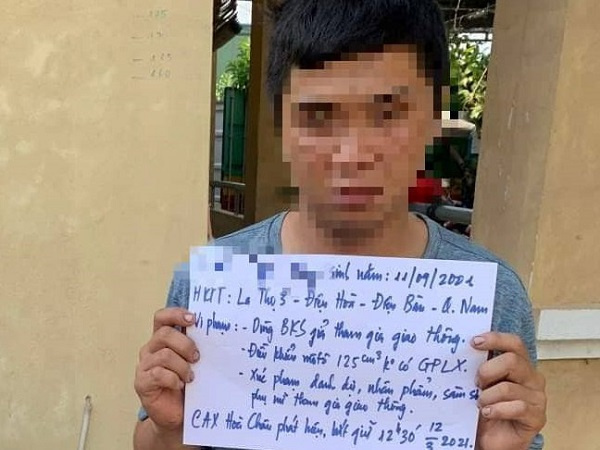 125
sinh năm: 11/09/2001
HKTT: La Thọ 3 - Điện Hoà - Điện Bàn - Q. Nam
Vi phạm: - Dùng BKS giả tham gia giao thông.
- Điều khiển môtô 125cm³ ko có GPLX.
- Xúc phạm danh dự, nhân phẩm, sàm sỡ
phụ nữ tham gia giao thông.
CAX Hoà Châu phát hiện, bắt giữ 12h30' 12/3 2021.